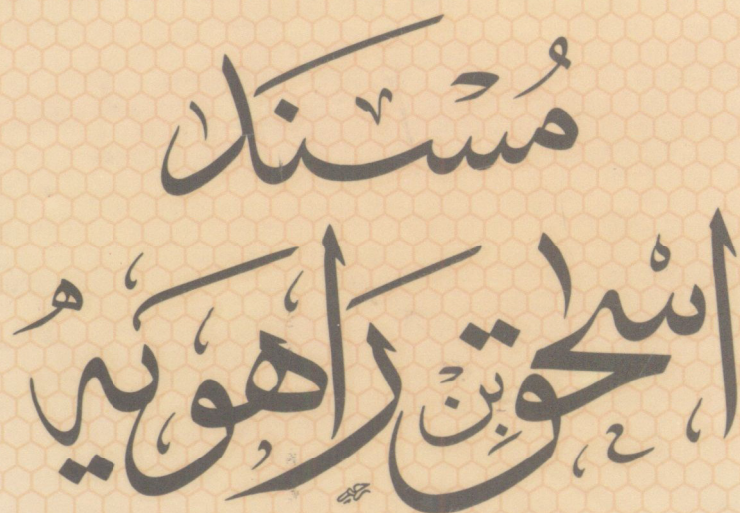 مُسْنَد
اسْحٰق بِنْ رَاهَوَيهُ